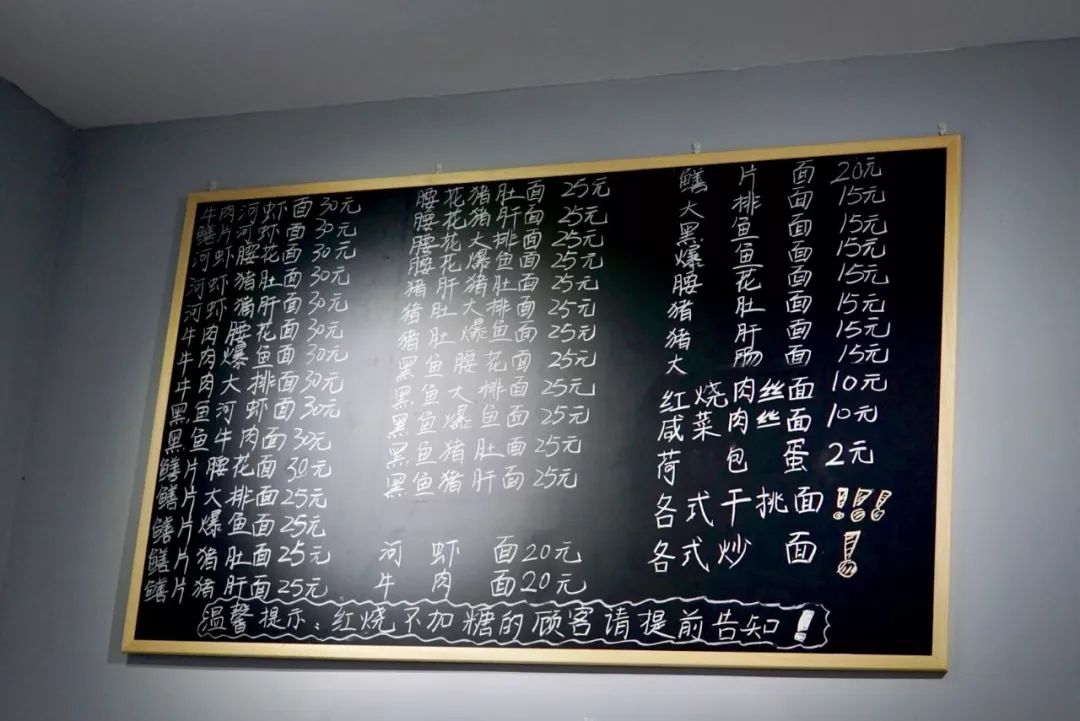 牛肉河虾面30元
鳝片河虾面30元
河虾腰花面30元
河虾猪肚面30元
河虾猪肝面30元
牛肉腰花面30元
牛肉爆鱼面30元
牛肉大排面30元
黑鱼河虾面30元
黑鱼牛肉面30元
鳝片腰花面30元
鳝片大排面25元
鳝片爆鱼面25元
鳝片猪肚面25元
鳝片猪肝面25元
腰花猪肚面 25元
腰花猪肝面 25元
腰花大排面 25元
腰花爆鱼面 25元
猪肝猪肚面 25元
猪肚大排面 25元
猪肚爆鱼面 25元
黑鱼腰花面 25元
黑鱼大排面 25元
黑鱼爆鱼面 25元
黑鱼猪肚面 25元
黑鱼猪肝面 25元
河虾面20元
牛肉面20元
鳝片面 20元
大排面 15元
黑鱼面 15元
爆鱼面 15元
腰花面 15元
猪肚面 15元
猪肝面 15元
大肠面 15元
红烧肉丝面 10元
咸菜肉丝面 10元
荷包蛋 2元
各式干挑面!!!
各式炒面!
温馨提示:红烧不加糖的顾客请提前告知!